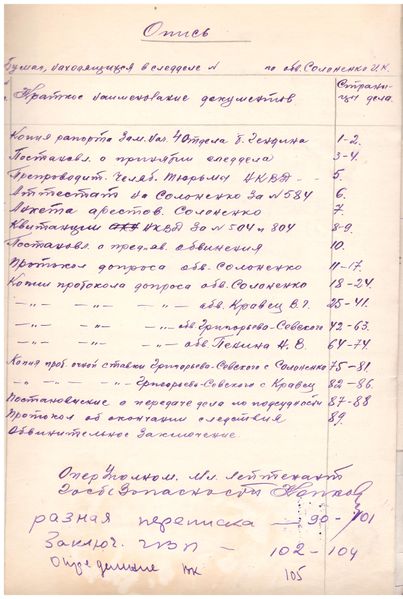 Опись
Бумаг, находящихся в следделе № по обв. Солоненко И.К.
Краткое наименование документов. Страницы дела.
Копия рапорта Зам. Нач. 4 Отдела т. Гендина 1-2.
Постановл. о принятии следдела 3-4.
Препроводит. Челяб. Тюрьмы НКВД - 5.
Аттестат на Солоненко За № 584 6.
Анкета арестов. Солоненко 7.
Квитанции НКВД За № 504 и 804 8-9.
Постановл. о пред'яв. обвинения 10.
Протокол допроса обв. Солоненко 11-17.
Копии протокола допроса обв. Солоненко 18-24.
—„— —„— —„— обв. Кравец В.Я. 25-41.
—„— —„— —„— обв. Григорьево-Севского 42-63.
—„— —„— —„— обв. Пекина Н.В. 64-74.
Копия прот. очной ставки Григорьево-Севского с Солоненко 75-81.
—„— —„— —„— Григорьево-Севского с Кравец 82-86.
Постановление о передаче дела по подсудности 87-88
Протокол об окончании следствия 89.
Обвинительное Заключение.
Опер Уполном. Мл. Лейтенант
Госбезопасности
разная переписка — 90-101
Заключ. — 102-104
Определение 105